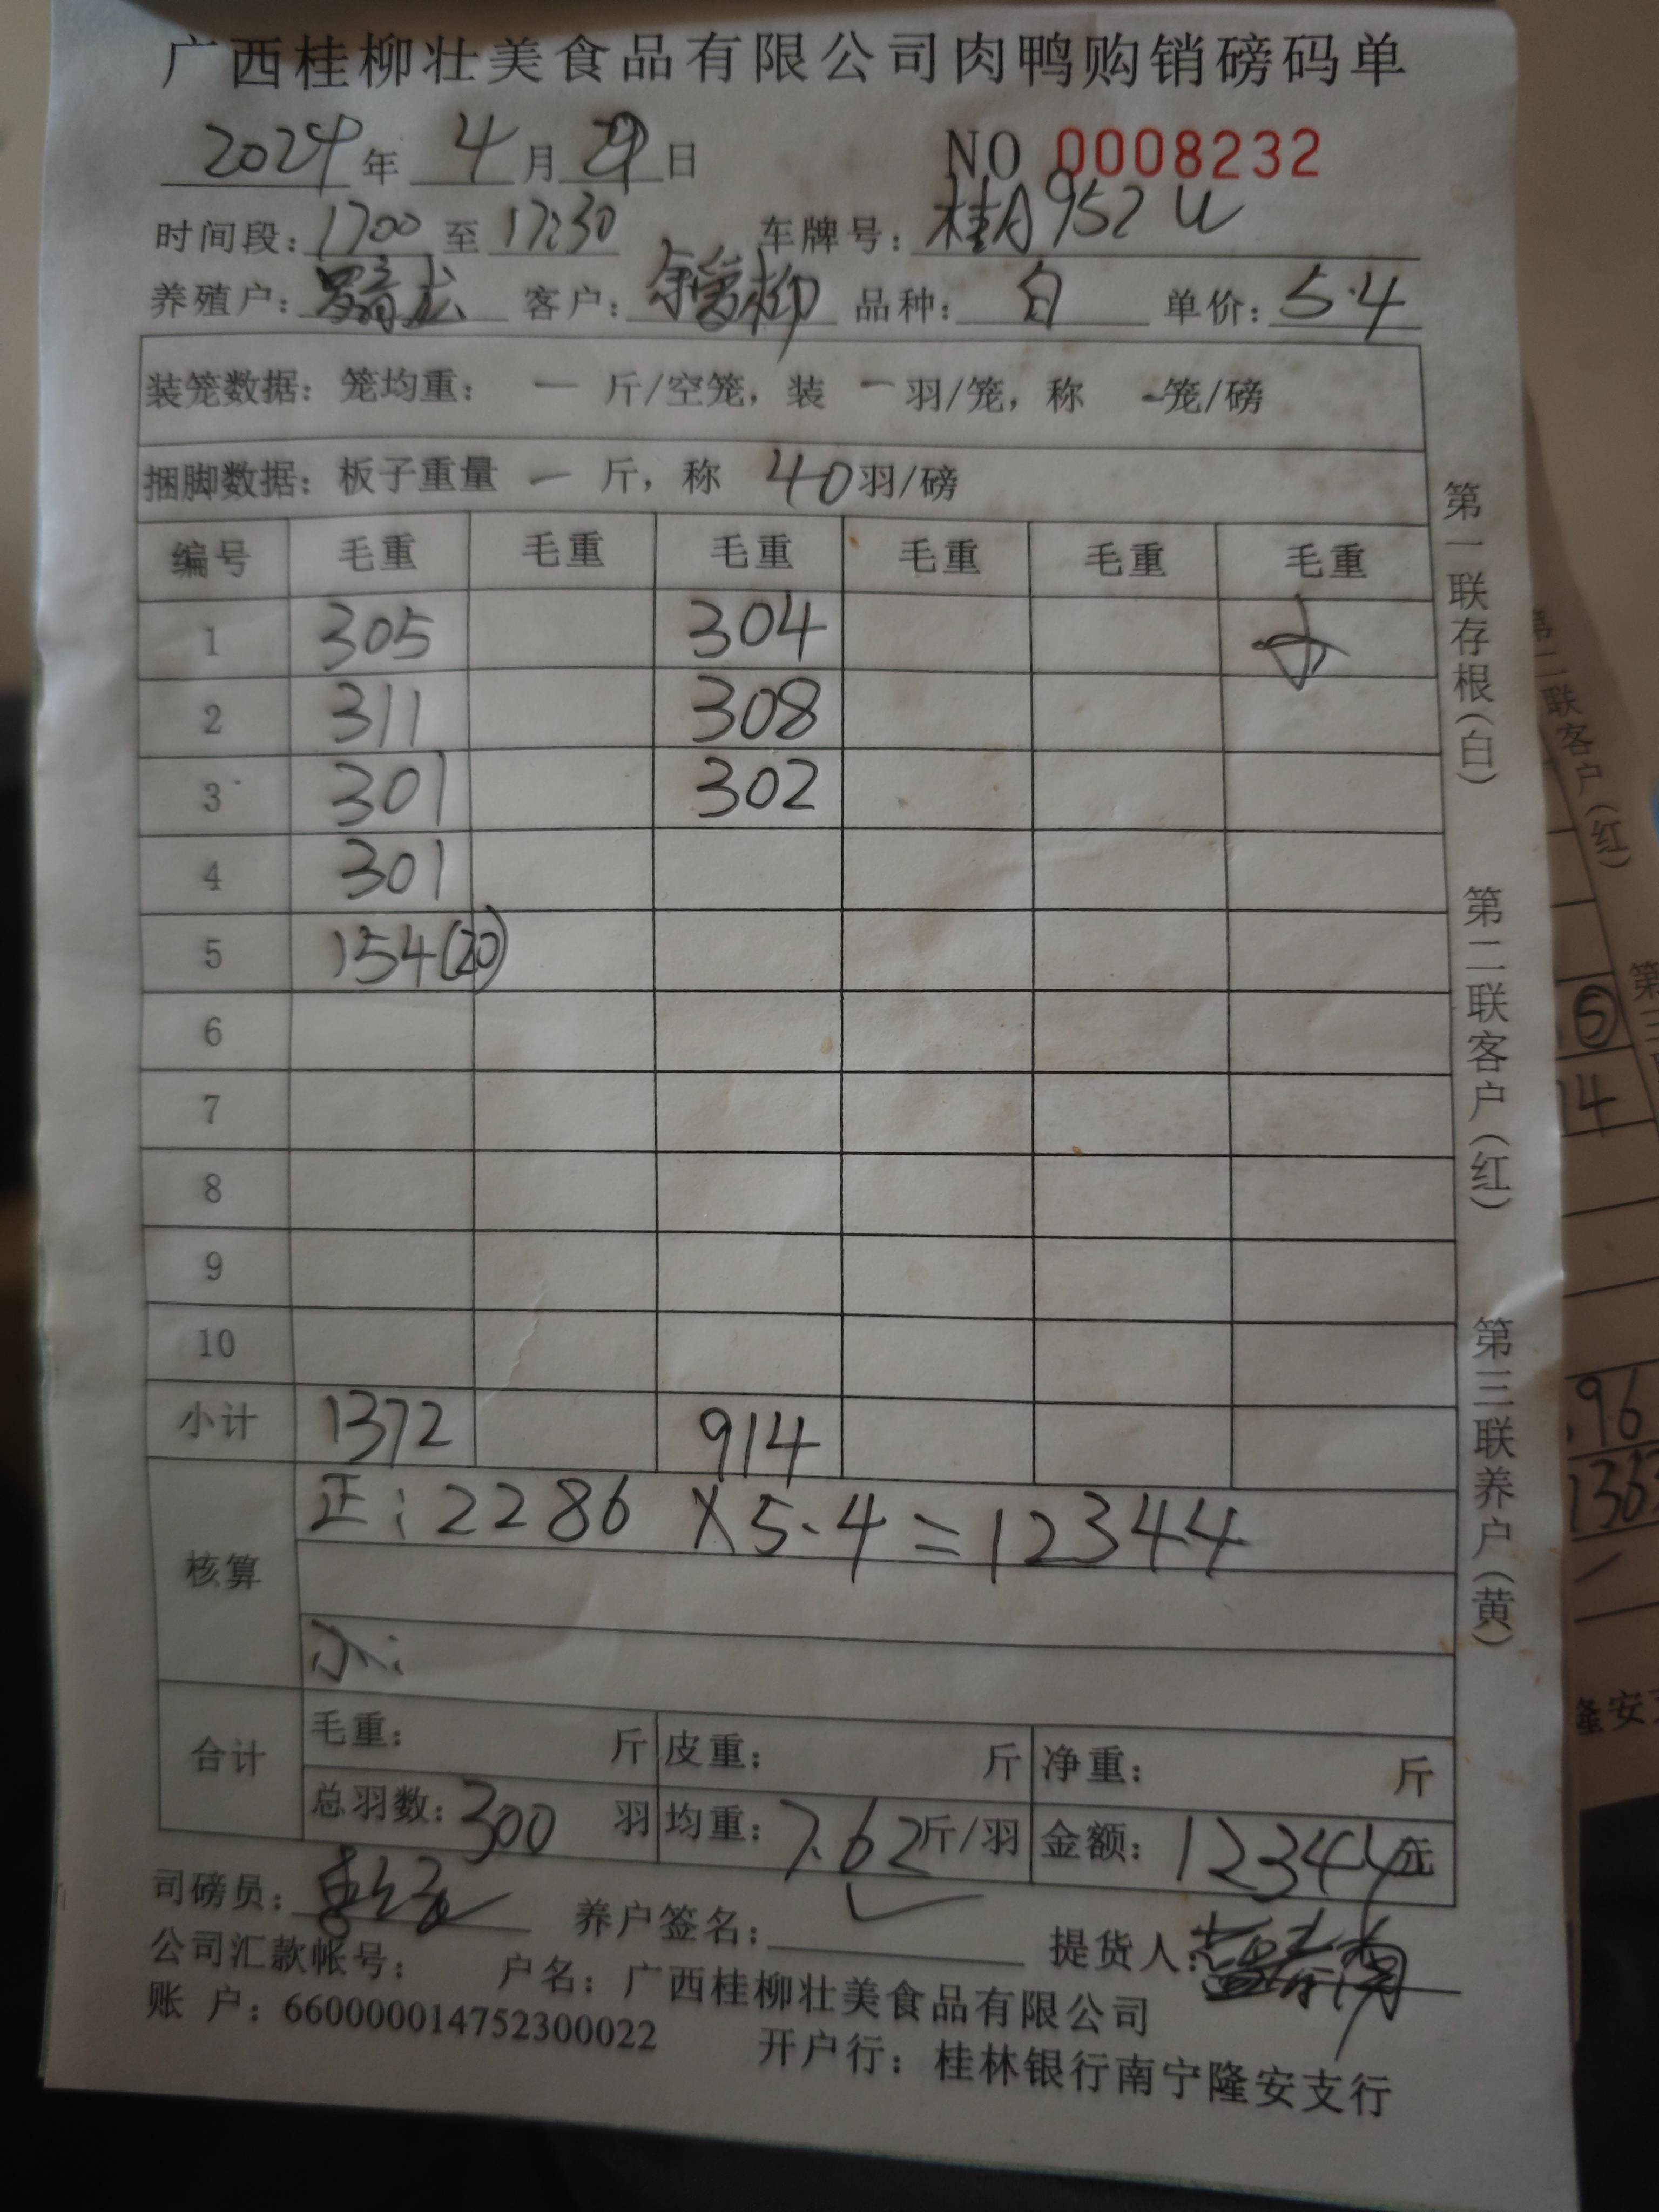 广西桂柳壮美食品有限公司肉鸭购销磅码单
2024年 4月29日 NO 0008232
时间段：1700 至 17:30 车牌号：桂A952U
养殖户： 客户： 品种：白 单价：5.4
装笼数据：笼均重： 一 斤/空笼，装 一 羽/笼，称 -笼/磅
捆脚数据：板子重量 一 斤，称 40羽/磅
编号 毛重 毛重 毛重 毛重 毛重 毛重
1 305 304
2 311 308
3 301 302
4 301
5 154(20)
6
7
8
9
10
小计 1372 914
核算 正：2286 X5.4=12344
小：
合计 毛重： 斤 皮重： 斤 净重： 斤
总羽数：300 羽 均重：7.62斤/羽 金额：12344元
司磅员： 养户签名： 提货人：
公司汇款帐号： 户名：广西桂柳壮美食品有限公司
账 户：660000014752300022 开户行：桂林银行南宁隆安支行
第一联存根(白) 第二联客户(红) 第三联养户(黄)
第二联客户(红)
⑤
14
96